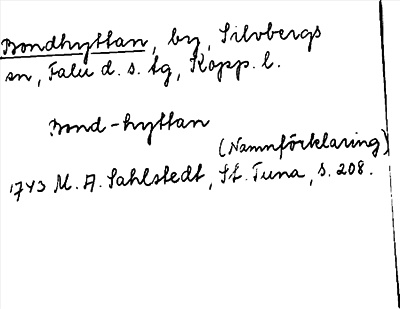 Bondhyttan, by, Silvbergs
sn, Falu d. s. tg, Kopp. l.
Bond-hyttan
(Namnförklaring)
1743 M. A. Sahlstedt, St. Tuna, s. 208.